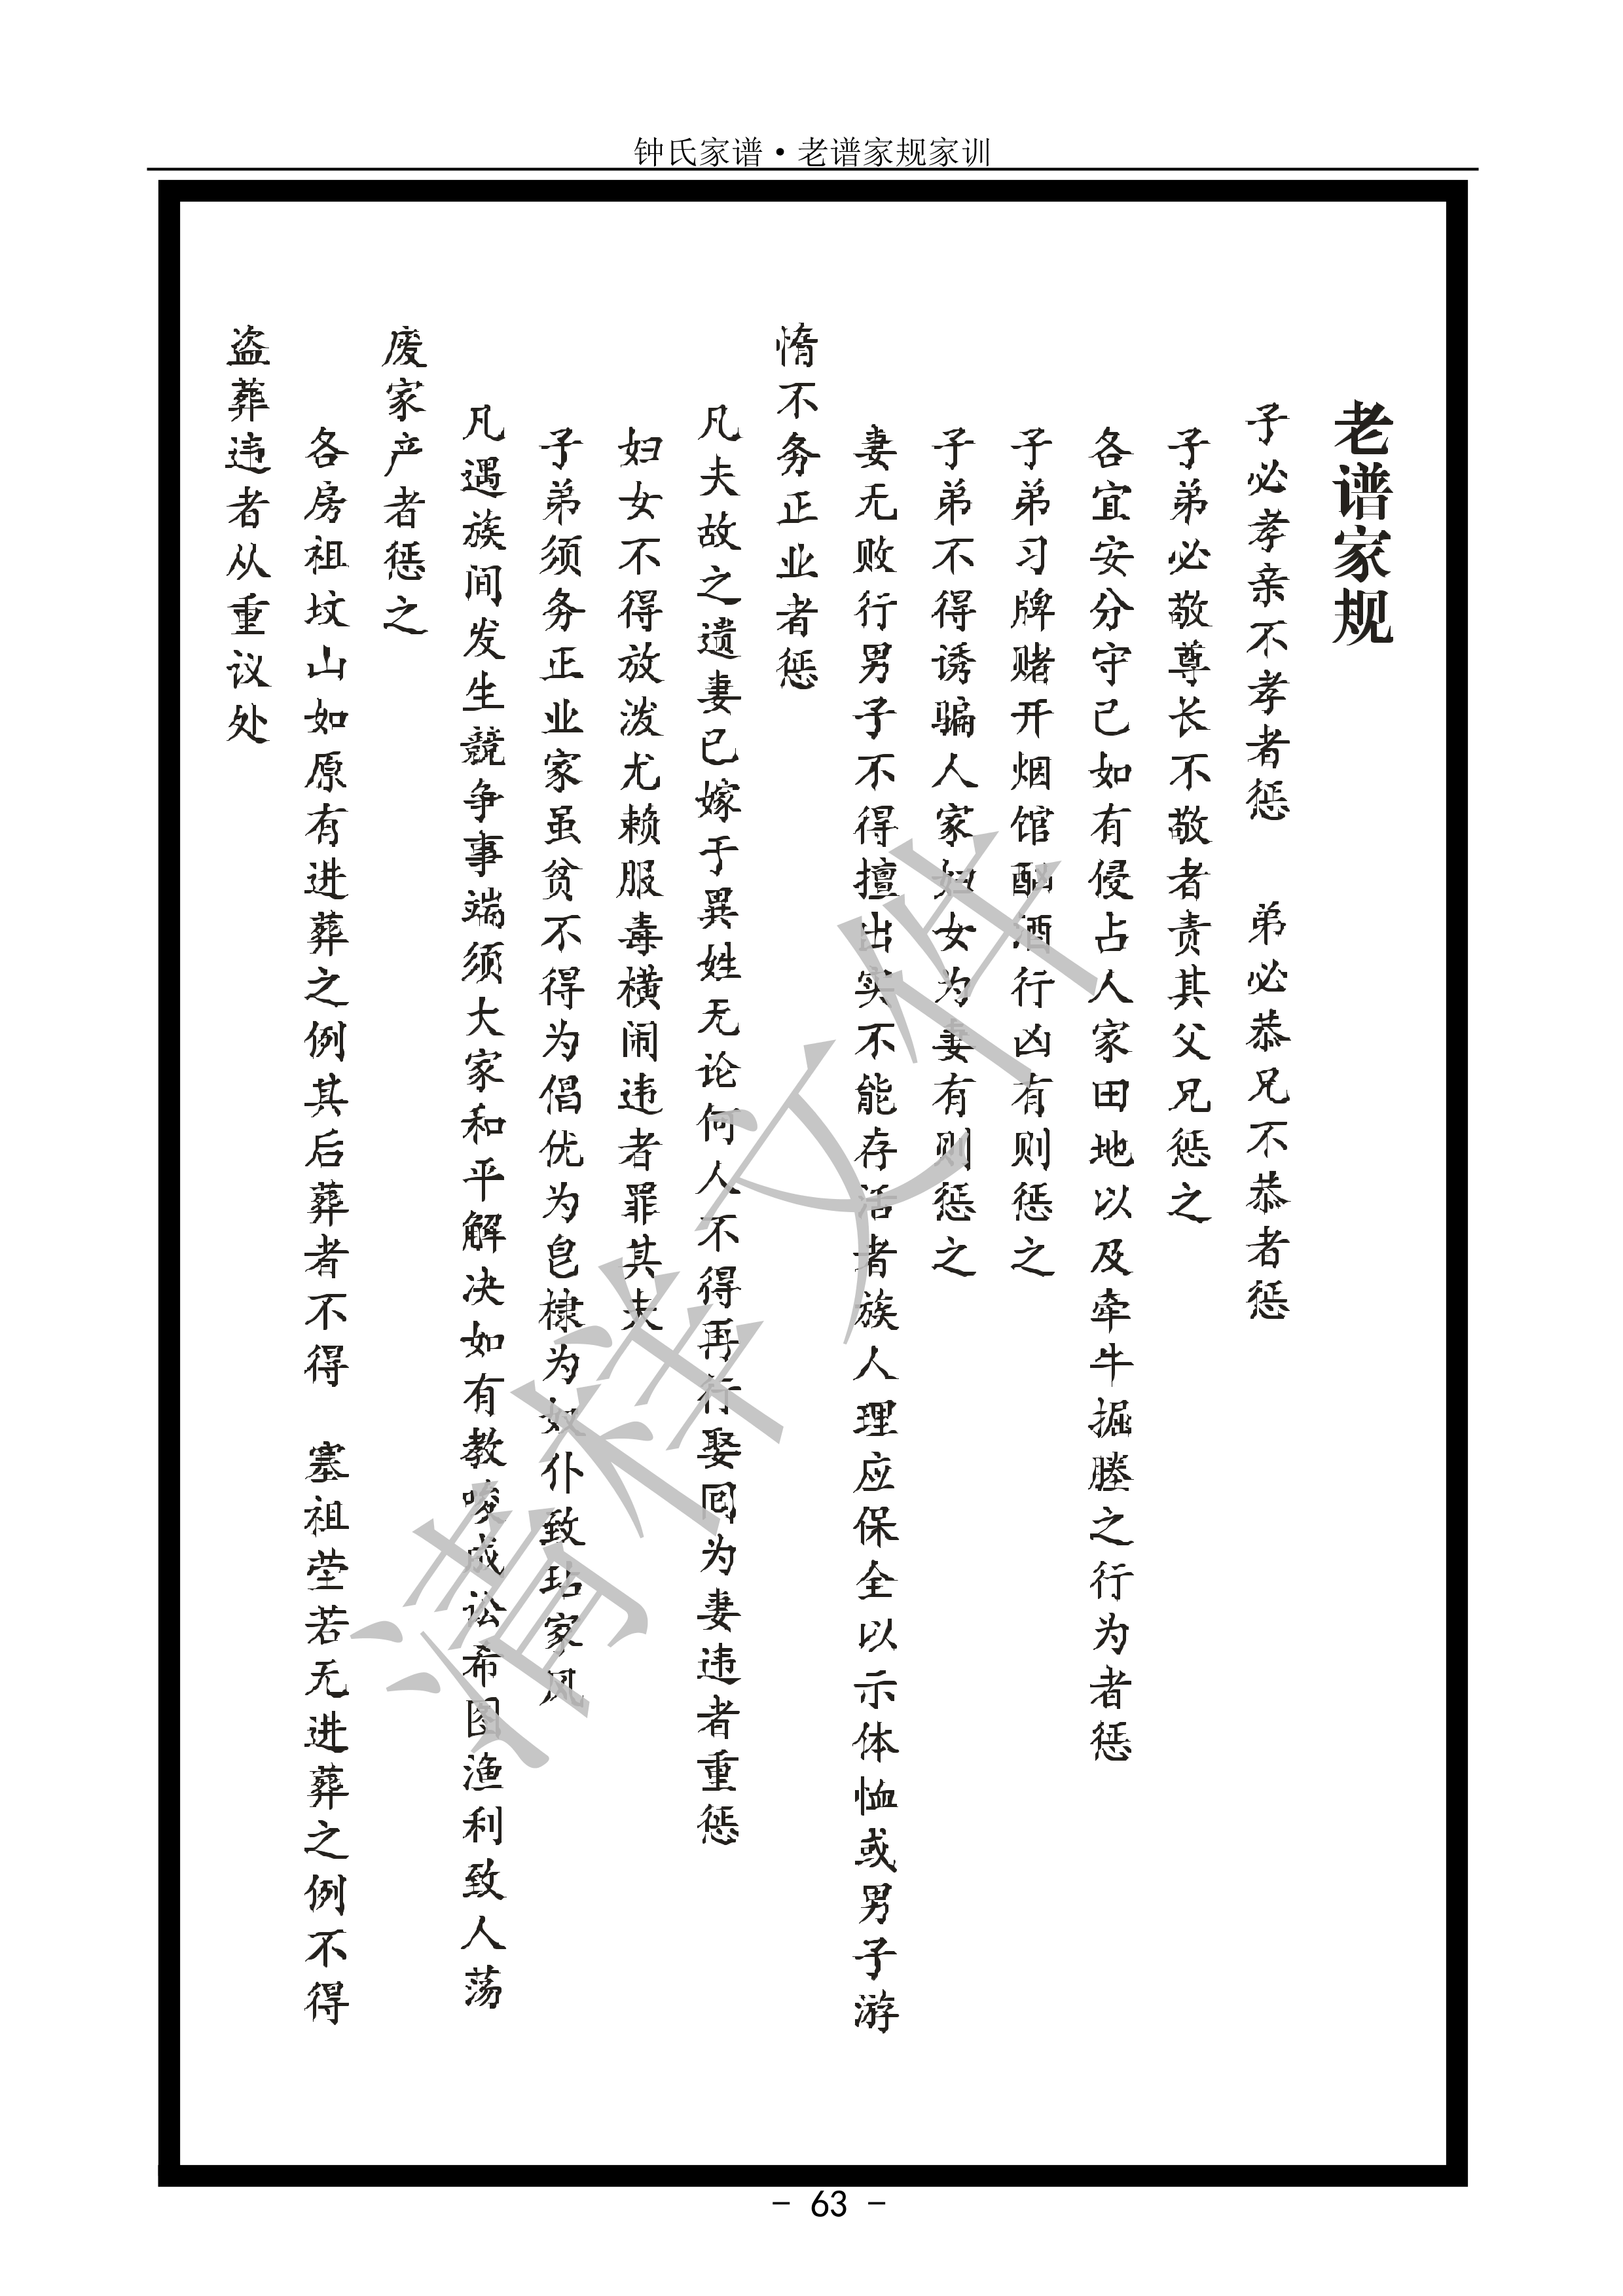 钟氏家谱·老谱家规家训
老谱家规
子必孝亲不孝者惩 弟必恭兄不恭者惩
子弟必敬尊长不敬者责其父兄惩之
各宜安分守己如有侵占人家田地以及牵牛掘塍之行为者惩
子弟习牌赌开烟馆酗酒行凶有则惩之
子弟不得诱骗人家妇女为妻有则惩之
妻无败行男子不得擅出实不能存活者族人理应保全以示体恤或男子游
惰不务正业者惩
凡夫故之遗妻已嫁于異姓无论何人不得再行娶回为妻违者重惩
妇女不得放泼尤赖服毒横闹违者罪其夫
子弟须务正业家虽贫不得为倡优为皀棣为奴仆致玷家风
凡遇族间发生競争事端须大家和平解决如有教唆成讼希图渔利致人荡
废家产者惩之
各房祖坟山如原有进葬之例其后葬者不得 塞祖茔若无进葬之例不得
盗葬违者从重议处
清样文件
- 63 -